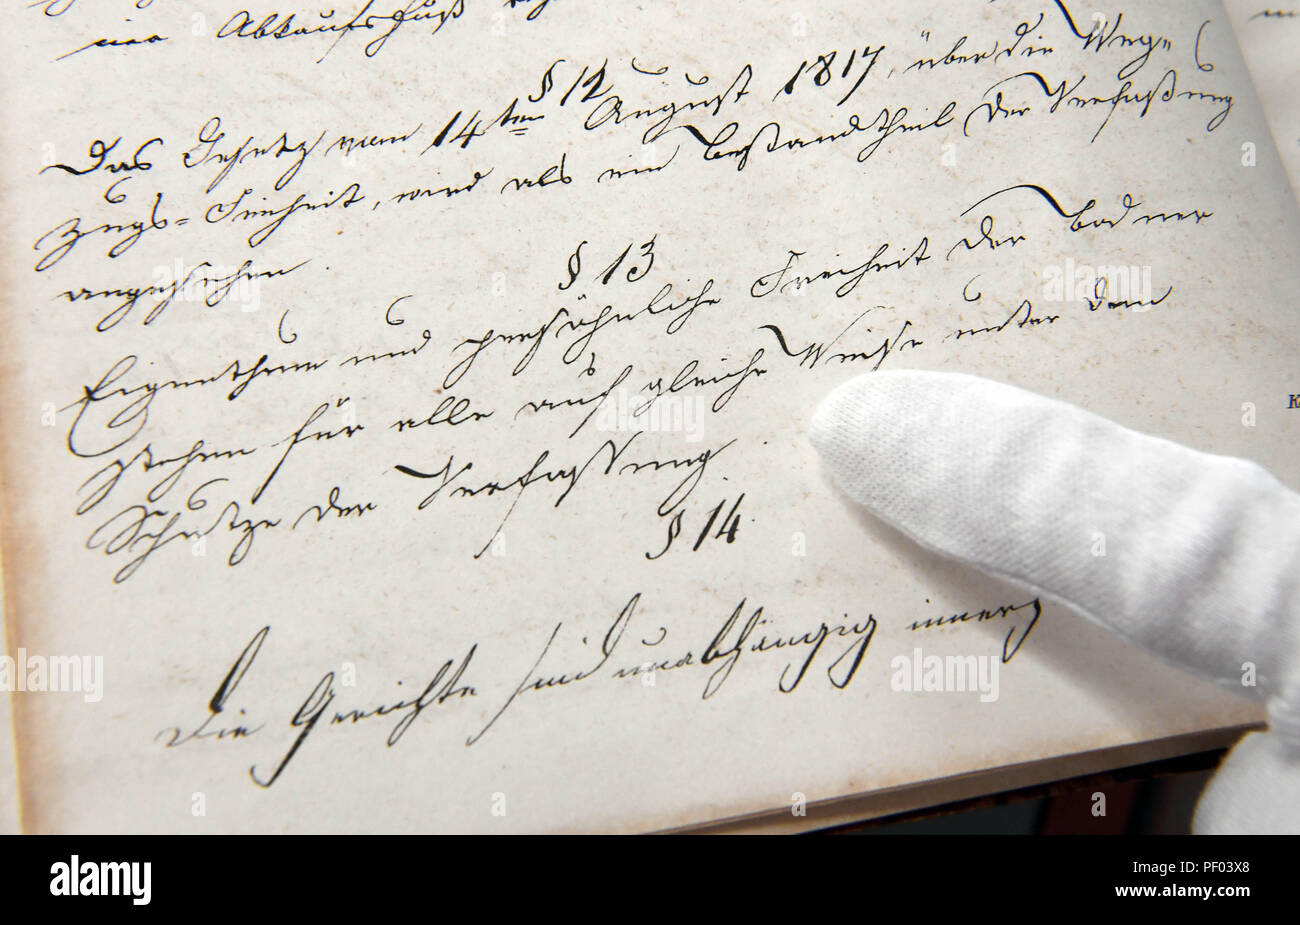 ner Abkaufsfuß
§ 12
Das Gesetz vom 14ten August 1817, über die Wege
zugs-Freiheit, wird als ein Bestandtheil der Verfaßung
angesehen.
§ 13
Eigenthum und persöhnliche Freiheit der Badener
stehen für alle auf gleiche Weise unter dem
Schutze der Verfassung.
§ 14.
Die Gerichte sind unabhängig innerh
K
alamy
PF03X8
www.alamy.com